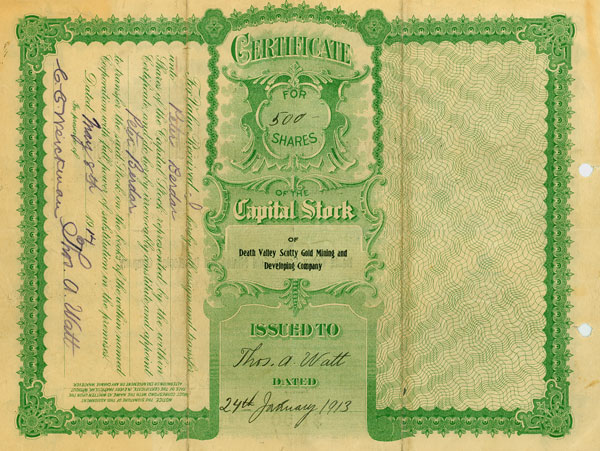 CERTIFICATE
FOR
500
SHARES
OF THE
Capital Stock
OF
Death Valley Scotty Gold Mining and
Developing Company
ISSUED TO
Thos. A Watt
DATED
24th January 1913
For Value Received
Peter Berdan
Shares of the Capital Stock represented by the within
Certificate, and do hereby irrevocably constitute and appoint
Peter Berdan
to transfer the said Stock on the books of the within named
Corporation with full power of substitution in the premises.
Dated May 8th 1914
In presence of
Thos. A. Watt
NOTICE. THE SIGNATURE OF THIS ASSIGNMENT
MUST CORRESPOND WITH THE NAME AS WRITTEN UPON THE
FACE OF THE CERTIFICATE, IN EVERY PARTICULAR, WITHOUT
ALTERATION OR ENLARGEMENT OR ANY CHANGE WHATEVER